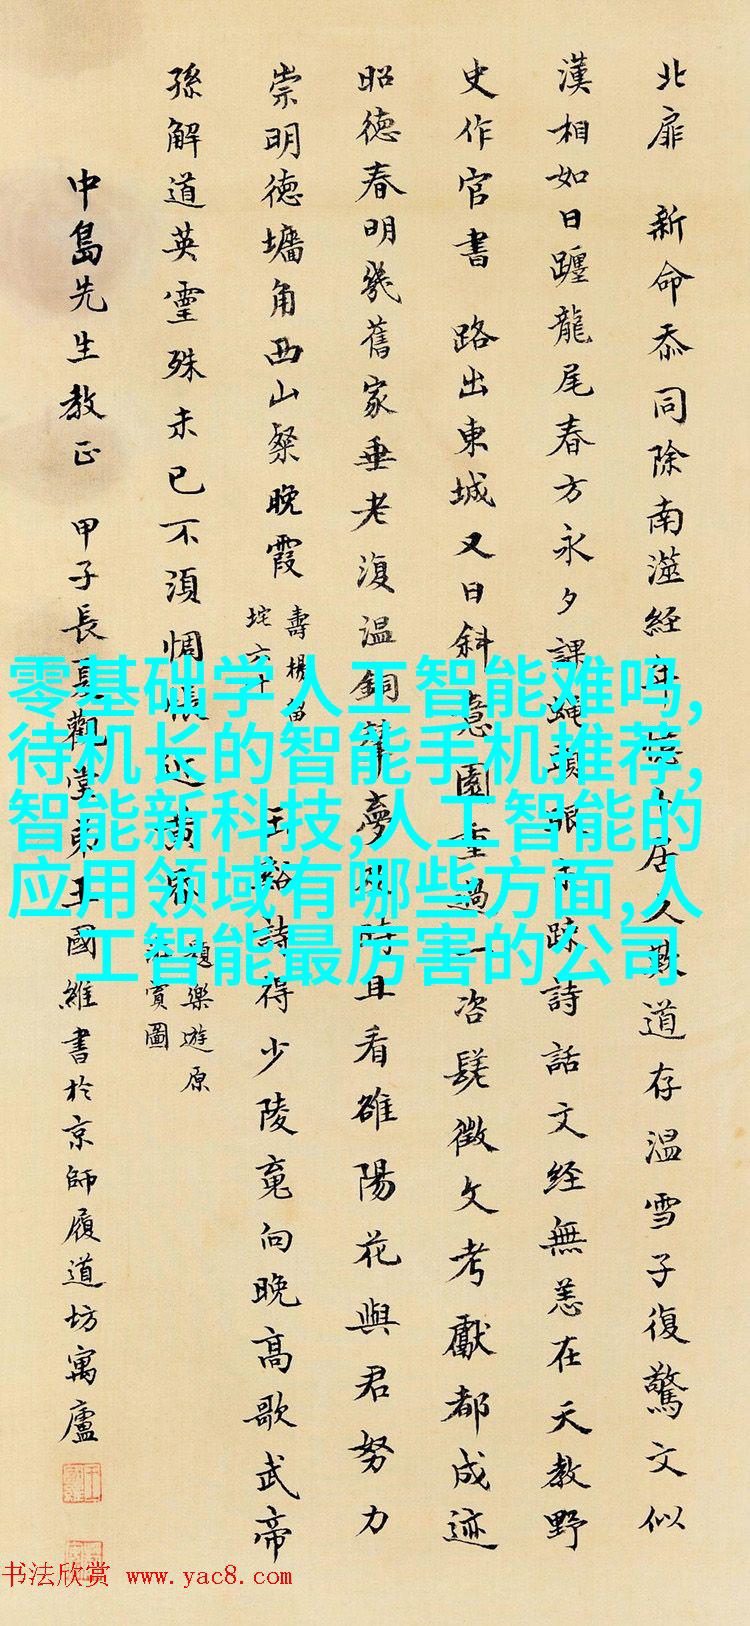 北扉 新命忝同除南澨經年
漢相如日躔龍尾春方永夕課蝇頭
史作官書 路出東城又日斜憶園重過一咨嗟徵文考獻都成迹
昭德春明幾舊家垂老復温銅輦夢及時且看雒陽花與君努力
崇明德墉角西山粲晚霞
壽楊留
垞六十
玉谿詩得少陵竟向晚高歌武帝
孫解道英靈殊未已不須惆悵近黄昏
題樂遊原
賞圖
中島先生教正 甲子長夏觀堂弟王國維書於京師履道坊寓廬
零基础学人工智能难吗,
待机长的智能手机推荐,
智能新科技,人工智能的
应用领域有哪些方面,人
工智能最厉害的公司
居久欺道存温雪子復驚文似
疎詩話文經無恙在天教野
书法欣赏 www.yac8.com